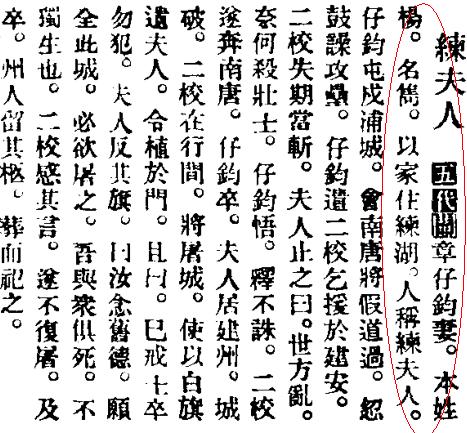 練夫人 五代閩章仔鈞妻。本姓
楊。名雋。以家住練湖。人稱練夫人。
仔鈞屯戍浦城。會南唐將假道過。忽
鼓譟攻壘。仔鈞遣二校乞援於建安。
二校失期當斬。夫人止之曰。世方亂。
奈何殺壯士。仔鈞悟。釋不誅。二校
遂奔南唐。仔鈞卒。夫人居建州。城
破。二校在行間。將屠城。使以白旗
遺夫人。令植於門。且曰。已戒士卒
勿犯。夫人反其旗。曰汝念舊德。願
全此城。必欲屠之。吾與衆俱死。不
獨生也。二校感其言。遂不復屠。及
卒。州人留其柩。葬而祀之。